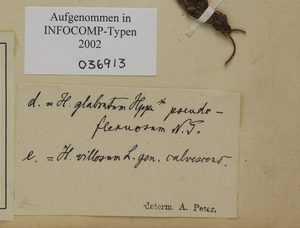 Aufgenommen in
INFOCOMP-Typen
2002
036913
d. = H. glabratum Hppe * pseudo-
flexuosum N.P.
e. = H. villosum L. gen. calvescens.
determ. A. Peter.